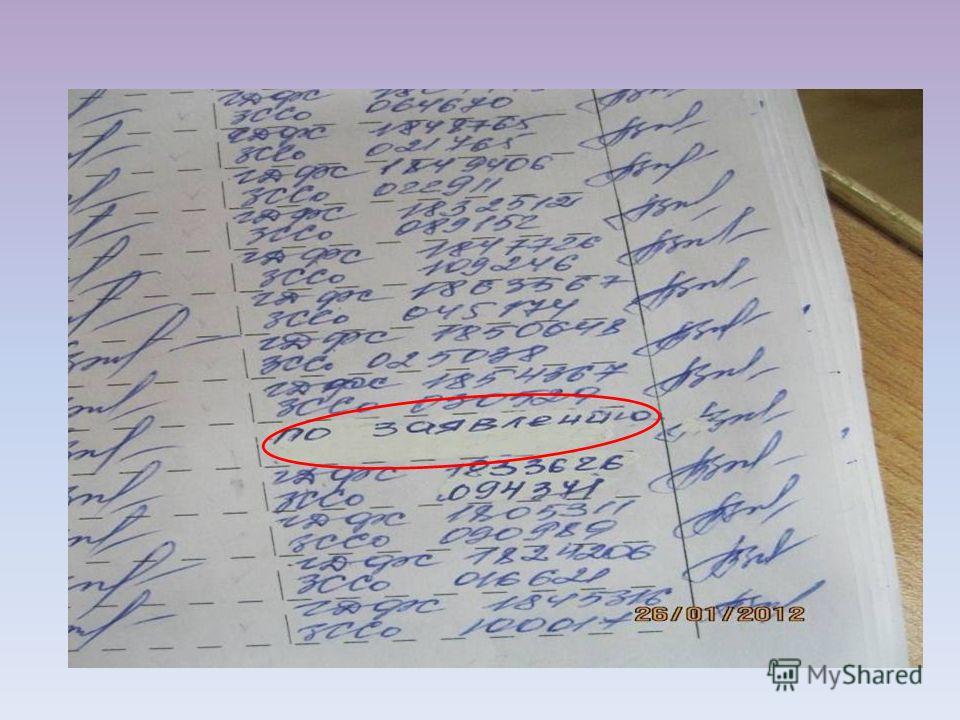 ЗССО 064670
ГДФХ 1848765
ЗССО 021765
ГДФХ 1849406
ЗССО 022911
ГДФХ 1832512
ЗССО 089152
ГДФХ 1847726
ЗССО 109246
ГДФХ 1863567
ЗССО 045174
ГДФХ 1850648
ЗССО 025038
ГДФХ 1854367
ЗССО 030524
по заявлению
ГДФХ 1833626
ЗССО 094371
ГДФХ 1805311
ЗССО 090989
ГДФХ 1824206
ЗССО 016621
ГДФХ 1845316
ЗССО 100017
26/01/2012
MyShared